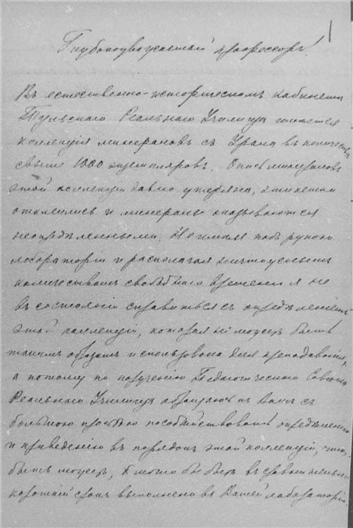 Глубокоуважаемый профессоръ!
Въ естественно-историческомъ кабинетѣ
Тульскаго Реальнаго Училища имѣется
коллекція минераловъ съ Урала въ количествѣ
свыше 1000 экземпляровъ. Опись минераловъ
этой коллекціи давно утеряна, этикетки
отклеились и минералы оказываются
неопредѣленными. Не имѣя подъ рукою
лабораторіи и располагая
количествомъ свободнаго времени я не
въ состояніи справиться съ опредѣленіемъ
этой коллекціи, которая не можетъ быть
такимъ образомъ использована для преподаванія,
а потому по порученію Педагогическаго Совѣта
Реальнаго Училища обращаюсь къ вамъ съ
большою просьбою посодѣйствовать опредѣленію
и приведенію въ порядокъ этой коллекціи, что,
быть можетъ, и могло бы быть въ сравнительно
короткій срокъ выполнено въ Вашей лабораторіи